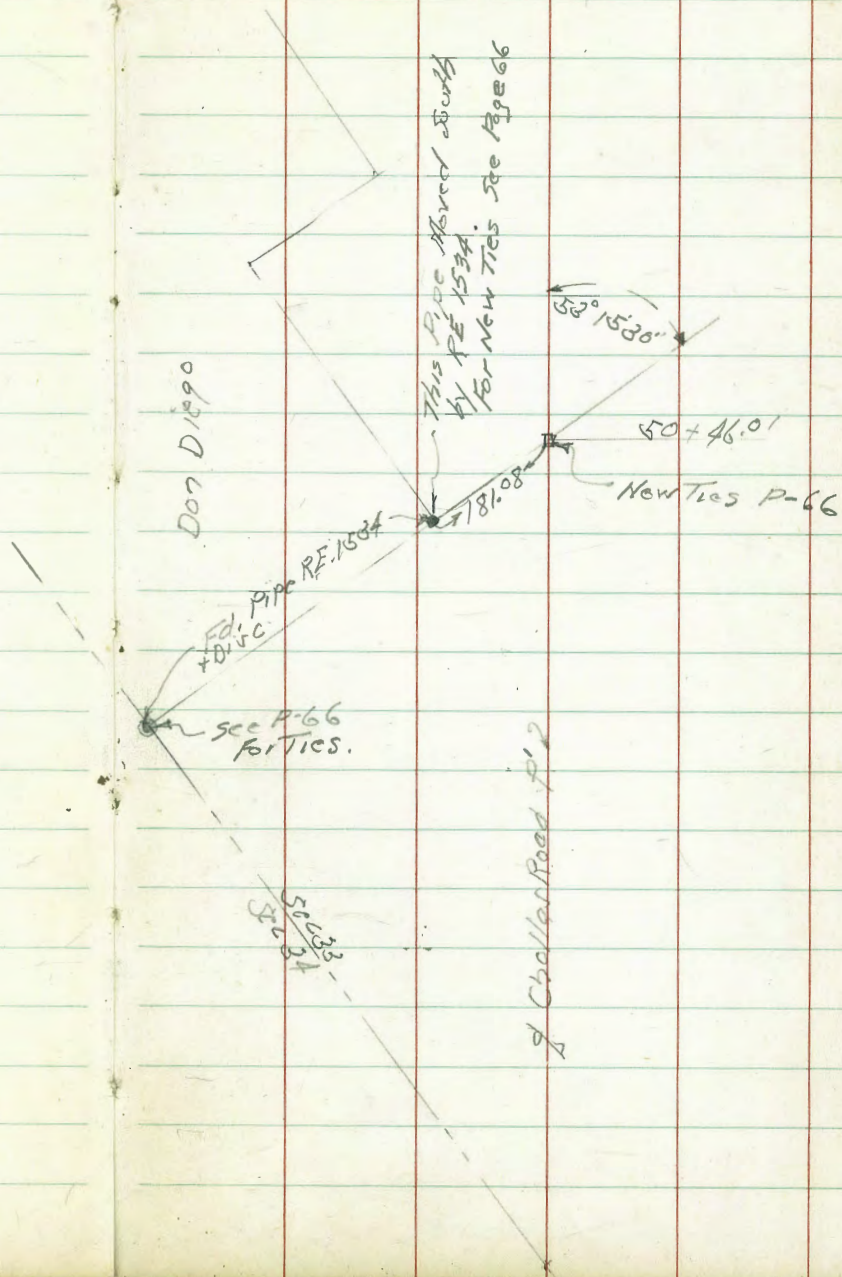 This Pipe Moved South
by RE 1534.
For New Ties See Page 66
53° 15'30"
Don Diego
50 + 46.01
New Ties P-66
181.08
Pipe RE.1534
Fd.
+ Disc
see P-66
For Ties.
Sec 33
Sec 34
Chollas Road